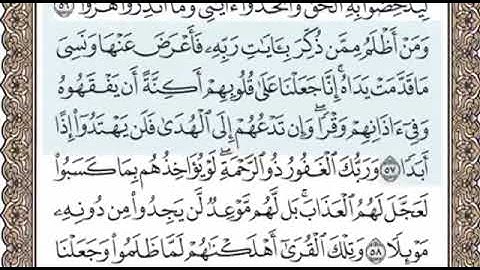 لِيُدْحِضُوا۟ بِهِ ٱلْحَقَّ وَٱتَّخَذُوٓا۟ ءَايَٰتِى وَمَآ أُنذِرُوا۟ هُزُوًا ٥٦
وَمَنْ أَظْلَمُ مِمَّن ذُكِّرَ بِـَٔايَٰتِ رَبِّهِۦ فَأَعْرَضَ عَنْهَا وَنَسِىَ
مَا قَدَّمَتْ يَدَاهُ ۚ إِنَّا جَعَلْنَا عَلَىٰ قُلُوبِهِمْ أَكِنَّةً أَن يَفْقَهُوهُ
وَفِىٓ ءَاذَانِهِمْ وَقْرًا ۖ وَإِن تَدْعُهُمْ إِلَى ٱلْهُدَىٰ فَلَن يَهْتَدُوٓا۟ إِذًا
أَبَدًا ٥٧ وَرَبُّكَ ٱلْغَفُورُ ذُو ٱلرَّحْمَةِ ۖ لَوْ يُؤَاخِذُهُم بِمَا كَسَبُوا۟
لَعَجَّلَ لَهُمُ ٱلْعَذَابَ ۚ بَل لَّهُم مَّوْعِدٌ لَّن يَجِدُوا۟ مِن دُونِهِۦ
مَوْئِلًا ٥٨ وَتِلْكَ ٱلْقُرَىٰٓ أَهْلَكْنَٰهُمْ لَمَّا ظَلَمُوا۟ وَجَعَلْنَا